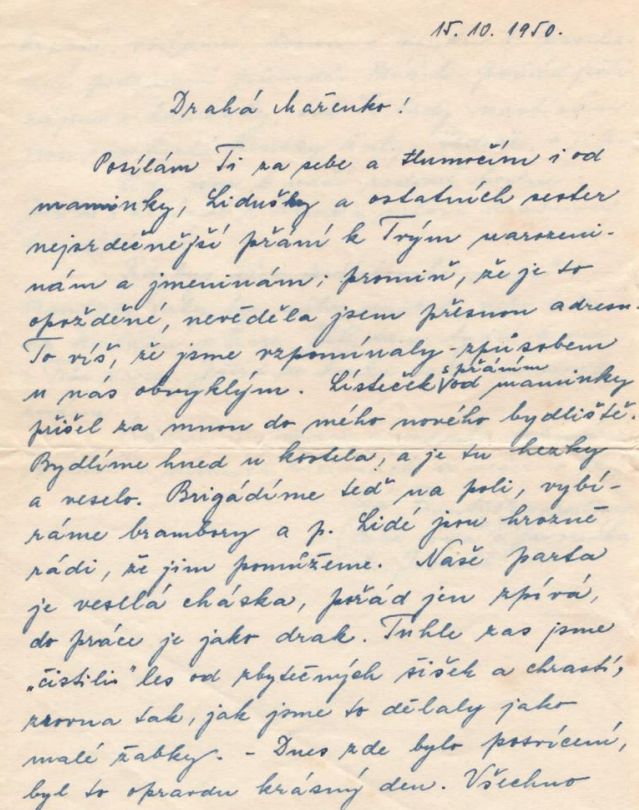 15. 10. 1950.
Drahá Mařenko!
Posílám Ti za sebe a tlumočím i od
maminky, Lidušky a ostatních sester
nejsrdečnější přání k Tvým narozeni-
nám a jmeninám; promiň, že je to
opožděné, nevěděla jsem přesnou adresu.
To víš, že jsme vzpomínaly - způsobem
u nás obvyklým. Lísteček s přáním od maminky
přišel za mnou do mého nového bydliště.
Bydlíme hned u kostela, a je tu hezky
a veselo. Brigádíme teď na poli, vybí-
ráme brambory a p. Lidé jsou hrozně
rádi, že jim pomůžeme. Naše parta
je veselá cháska, pořád jen zpívá,
do práce je jako drak. Tuhle zas jsme
„čistili" les od zbytečných šišek a chrastí,
zrovna tak, jak jsme to dělaly jako
malé žabky. - Dnes zde bylo posvícení,
byl to opravdu krásný den. Všechno